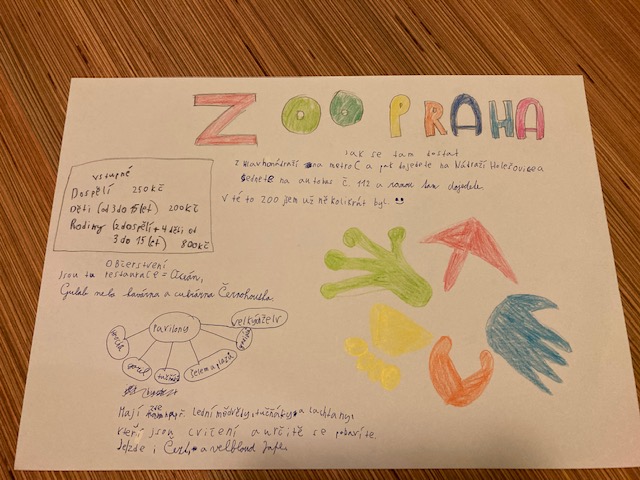 ZOO PRAHA
Jak se tam dostat
Z Hlavhonádraží na metro C a pak dojedete na Nádraží Holešovice a
sednete na autobus č. 112 a rovnou tam dojedete.
V té to ZOO jsem už několikrát byl.
vstupné
Dospělí 250 Kč
Děti (od 3 do 15 let) 200 Kč
Rodiny (2 dospělí + 4 děti od
3 do 15 let) 800 Kč
Občerstvení
Jsou tu restaurace =
Gulab nebo kavárna a cukrárna Černohouska.
Pavilony
velkýchželv
goril
tučňáci
Mají zde např. lední medvědy, tučňáky a lachtany,
kteří jsou cvičení a určitě se pobavíte.
Je zde i a velbloud